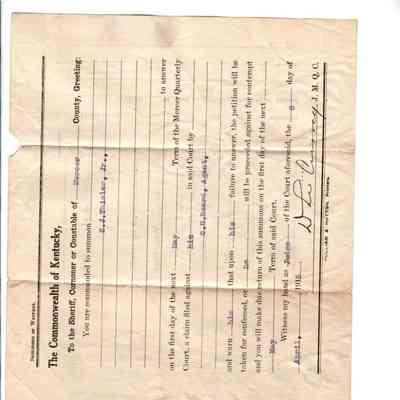 The Commonwealth of Kentucky,
To the Sheriff, Coroner or Constable of Mercer County, Greeting:
You are commanded to summon
to answer
on the first day of the next May Term of the Mercer Quarterly
Court, a claim filed against him in said Court by
Agent,
and warn him that upon his failure to answer, the petition will be
taken for confessed, or he will be proceeded against for contempt
and you will make due return of this summons on the first day of the next
May Term of said Court.
Witness my hand as Judge of the Court aforesaid, the 8 day of
April, 191
J. M. Q. C.